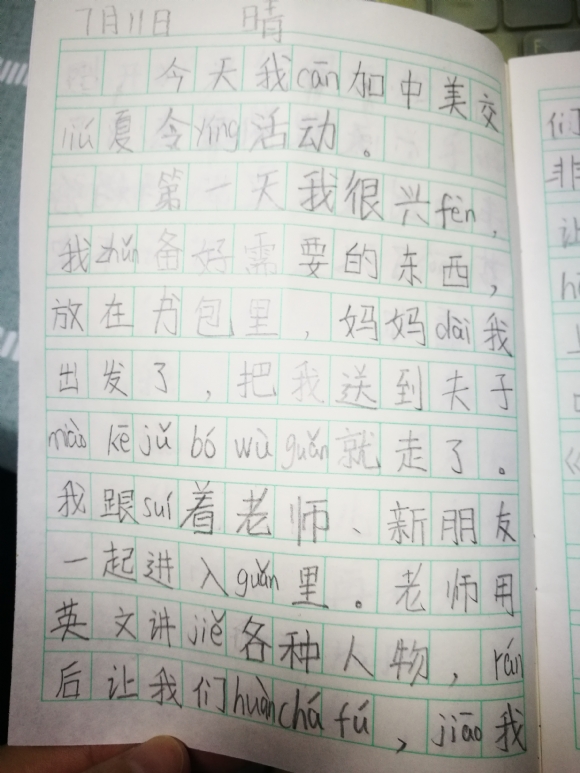 7月11日 晴
今天我cān加中美交
liú夏令yíng活动。
第一天我很兴fèn,
我zhǔn备好需要的东西,
放在书包里,妈妈dài我
出发了,把我送到夫子
miào kē jǔ bó wù guǎn就走了。
我跟suí着老师、新朋友
一起进入guǎn里。老师用
英文讲jiě各种人物,rán
后让我们huàn chá fú,jiāo我
们
非
让
上